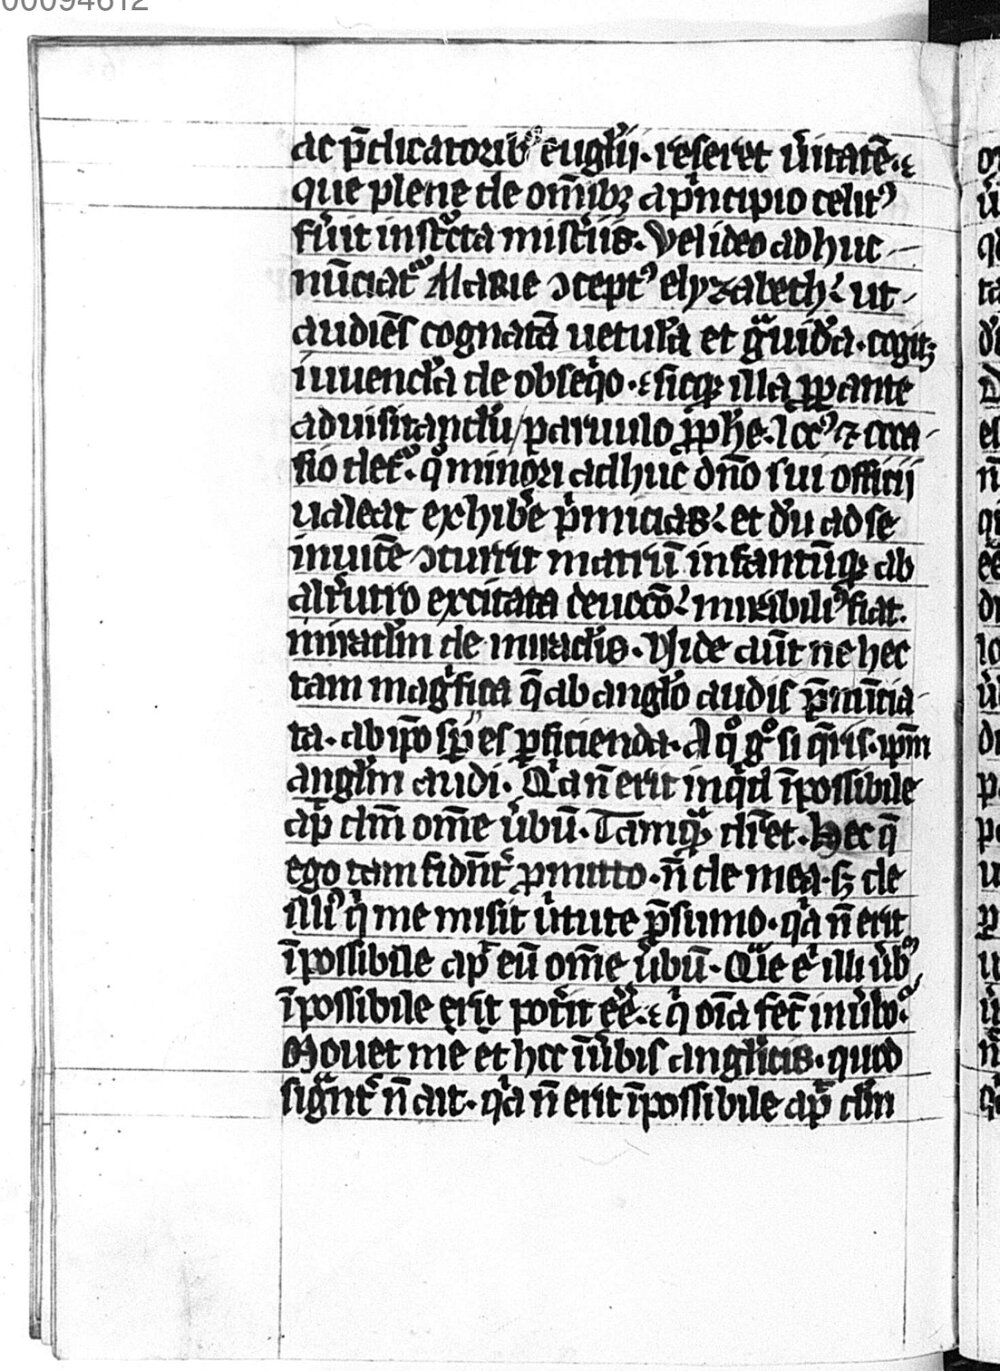 00094612
ac p̄dicatorib⁹ euglĩi · reseret ũitatẽ ·
que plene de om̃ibꝫ a pⁱncipio celit⁹
fũit instͨcta mist̃iis · Vel ideo adhuc
nũciatͬ Marie ꝯcept⁹ elyzabeth ut
audiẽs cognatã uetul̃a et gͣuid̃a · cogitꝫ
iuuencl̃a de obseqⁱo · sicqꝫ illa ꝓꝑante
ad uisitandũ paruulo ꝓph̃e · loc⁹ ⁊ occa
sio detͬ · qͦ minori adhuc dño sui officii
ualeat exhib̃e pⁱmicias et dũ ad se
inuicẽ ꝯcurrit matrũ infantũqꝫ ab
alt̃utro excitata deuocõ miͣbili⁹ fiat
miracl̃m de miraclis · Vide aũt ne hec
tam magͥfica q̃ ab angl̃o audis p̄nũcia
ta · ab ip̃o sp̃es ꝑficienda · A qͦ gͦ si q̃ris · ip̃m
angl̃m audi · Qͥa ñ erit inqͥd ĩpossibile
ap̃ dm̃ om̃e ũbũ · Tamqͣ diͨet · Hec q̃
ego tam fidñtͬ ꝓmitto · ñ de mea · sꝫ de
illi⁹ qͥ me misit ũtute p̄sumo · qͥa ñ erit
ĩpossibile ap̃ eũ om̃e ũbũ · Qͣle eͥ illi ũbͫ
ĩpossibile erit pot̃it eẽ · qͥ oĩa fecͭ in ũbo
Mouet me et hͨ ĩ ũbis angl̃icis · quod
signͣntͬ ñ ait · qͥa ñ erit ĩpossibile ap̃ dm̃